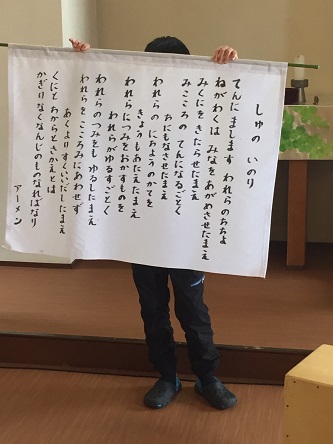 しゅの いのり
てんに まします われらのちちよ
ねがわくは みなを あがめさせたまえ
みくにを きたらせたまえ
みこころの てんになるごとく
ちにもなさせたまえ
われらの にちようのかてを
きょうもあたえたまえ
われらにつみをおかすものを
われらがゆるすごとく
われらのつみをも ゆるしたまえ
われらを こころみにあわせず
あくよりすくいいだしたまえ
くにと ちからと さかえとは
かぎりなくなんじのものなればなり
アーメン